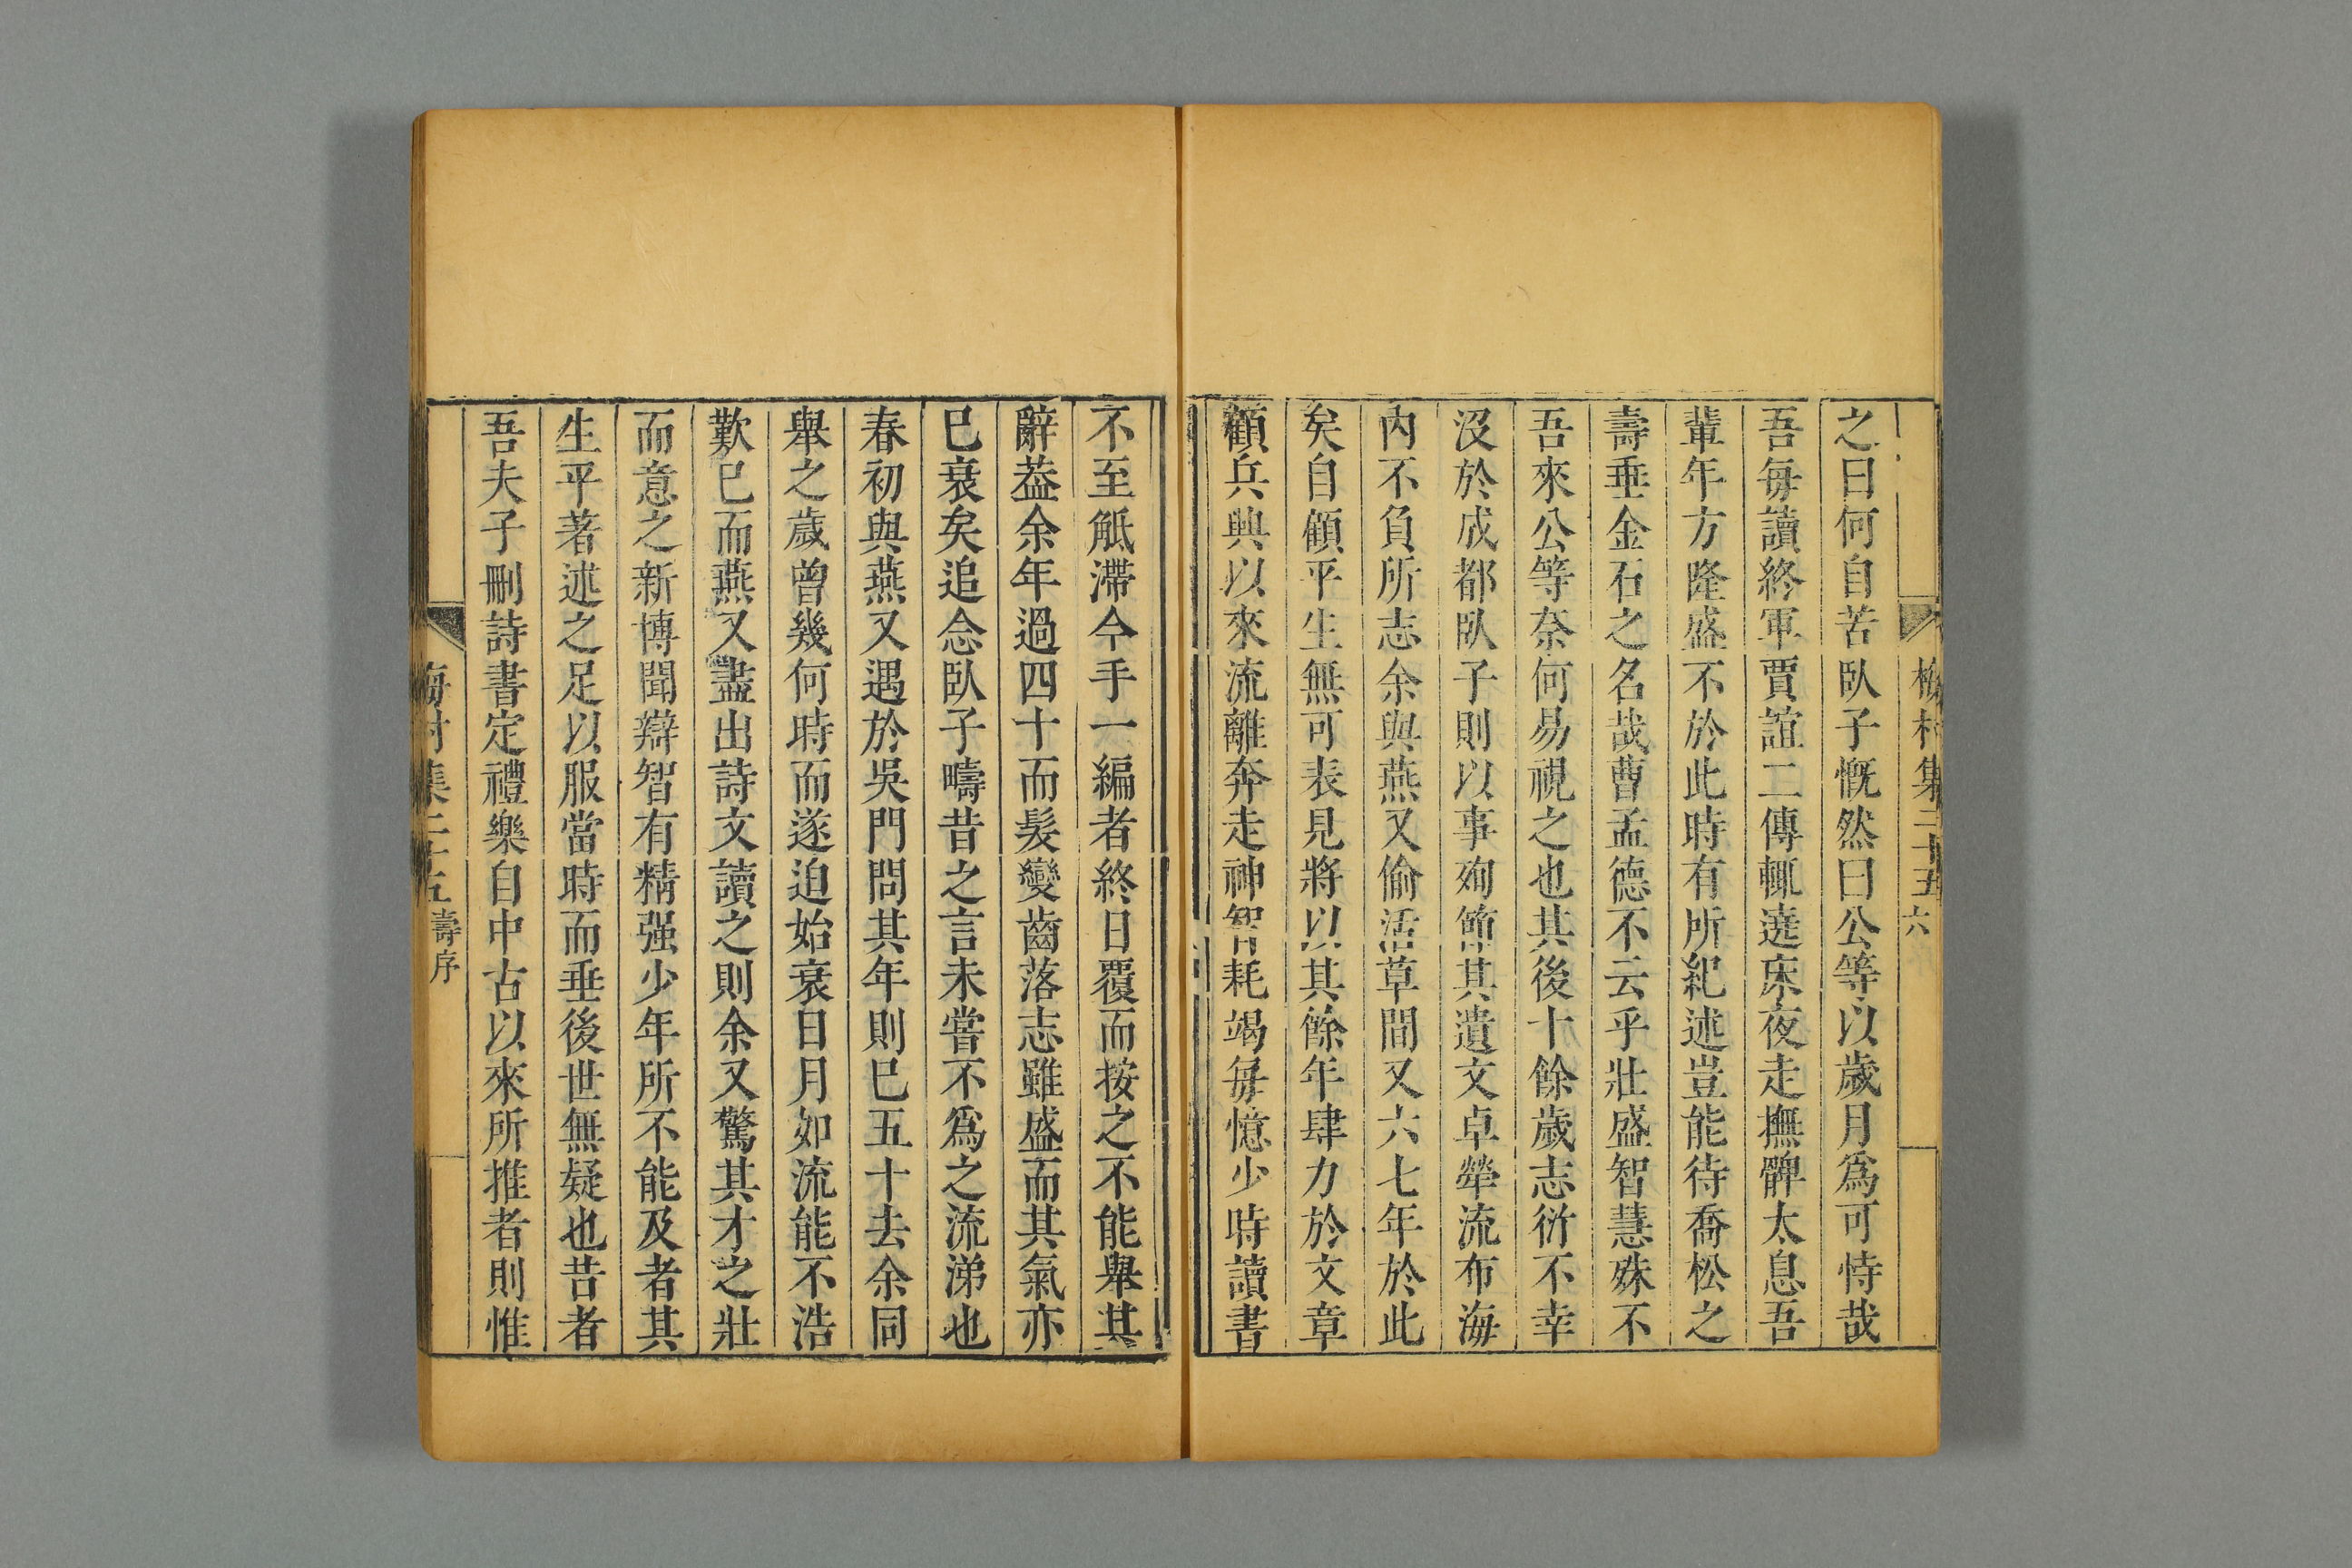 梅村集二十五 六
之曰何自苦臥子慨然曰公等以歲月爲可恃哉
吾每讀終軍賈誼二傳輒遶床夜走撫髀太息吾
輩年方隆盛不於此時有所紀述豈能待喬松之
壽垂金石之名哉曹孟德不云乎壯盛智慧殊不
吾來公等奈何易視之也其後十餘歲志衍不幸
沒於成都臥子則以事殉節其遺文卓犖流布海
內不負所志余與燕又偷活草間又六七年於此
矣自顧平生無可表見將以其餘年肆力於文章
顧兵興以來流離奔走神智耗竭每憶少時讀書
不至觝滯今手一編者終日覆而按之不能舉其
辭葢余年過四十而髮變齒落志雖盛而其氣亦
已衰矣追念臥子疇昔之言未嘗不爲之流涕也
春初與燕又遇於吳門問其年則已五十去余同
舉之歲曾幾何時而遂迫始衰日月如流能不浩
歎已而燕又盡出詩文讀之則余又驚其才之壯
而意之新博聞辯智有精强少年所不能及者其
生平著述之足以服當時而垂後世無疑也昔者
吾夫子刪詩書定禮樂自中古以來所推者則惟
梅村集二十五 壽序